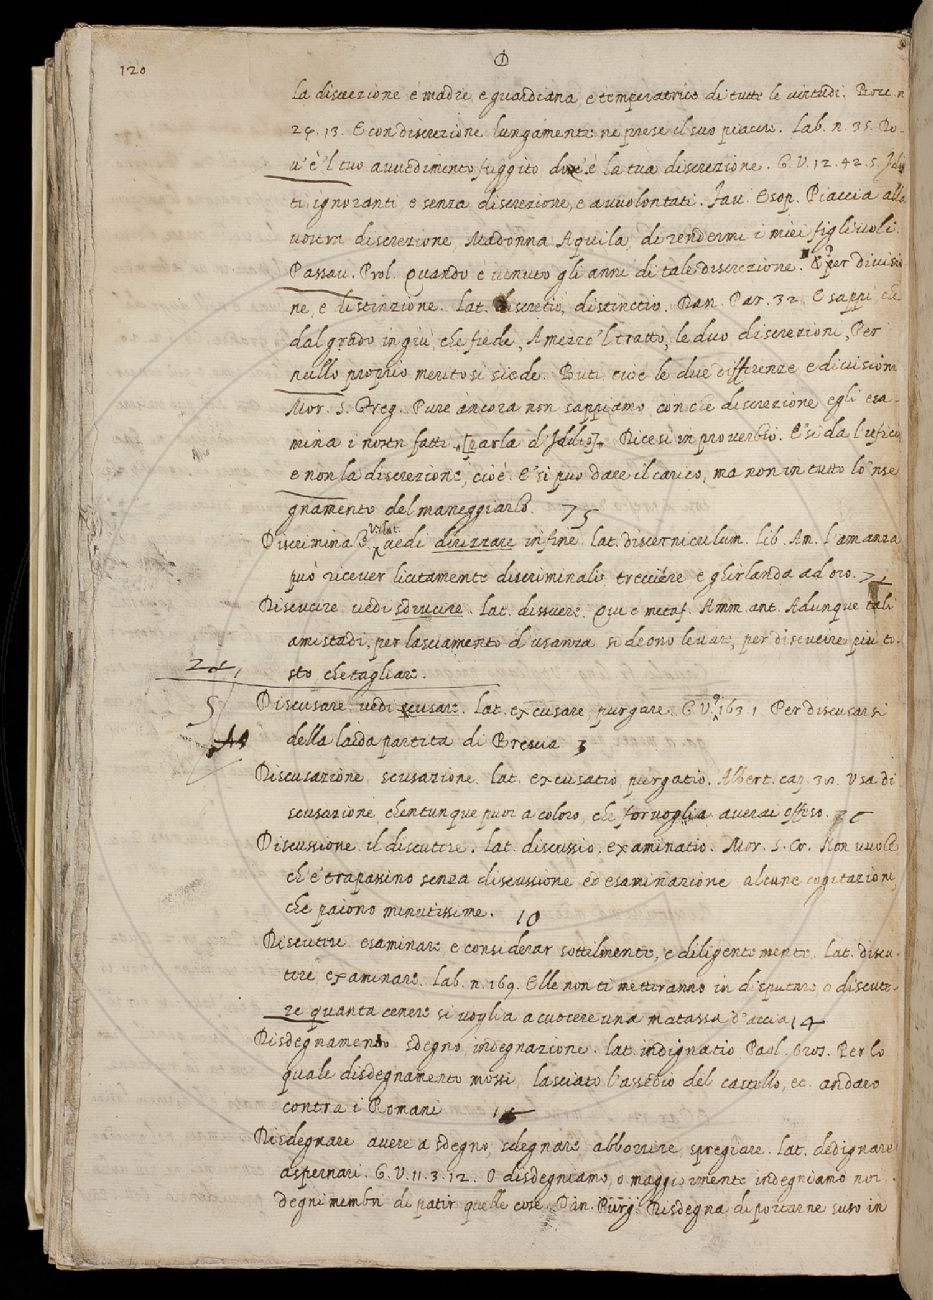 120
D
la discrezione è madre, e guardiana, e temperatrice di tutte le virtudi. Bocc. n
24. 13. E con discrezione lungamente ne prese il suo piacere. Lab. n. 35. Do-
v' è 'l tuo avvedimento fuggito dov' è la tua discrezione. G. V. 12. 42. 5.
ti, ignoranti, e senza discrezione, e avvolontati. Fav. Esop. Piaccia alla
vostra discrezione Madonna Aquila, di rendermi i miei figlivoli.
Passav. Prol. Quando è venuto gli anni di tale discrezione. & per divisio
ne, e distinzione. Lat. discretio, distinctio. Dan. Par. 32. E sappi che
dal grado in giù, che fiede, A mezzo 'l tratto, le due discrezioni, Per
nullo proprio merito si siede. Buti, cioè le due differenze e divisioni
Mor. S. Greg. Pure ancora non sappiamo, con che discrezione egli esa-
mina i nostri fatti [parla d' Iddio]. Dicesi in proverbio. E' si dà l' uficio
e non la discrezione, cioè E' si può dare il carico, ma non in tutto lo 'nse
gnamento del maneggiarlo. 75
Discrimina vedi dirizzare in fine. lat. discerniculum. Lib. Am. l' amanza
può ricever licitamente discriminali, trecciere e ghirlanda ad oro.
Discucire vedi sdrucire. Lat. dissuere. Qui è metaf. Amm. ant. Adunque tali
amistadi, per lasciamento d' usanza si deono levare, per discucire più to-
sto che tagliare.
Discusare vedi scusare. Lat. excusare, purgare. G. V. 9 163. 1 Per discusarsi
5
della laida partita di Brescia 3
Discusazione scusazione. Lat. excusatio, purgatio. Albert. cap. 30. Usa di
scusazione chentunque puoi a coloro, che forvoglia averai offeso.
Discussione il discutere. Lat. discussio, examinatio. Mor. S. Gr. Non vuole
che trapassino senza discussione ed esaminazione alcune cogitazioni
che paiono minutissime. 10
Discutere esaminare e considerar sottilmente, e diligentemente. Lat. discu-
tere, examinare. Lab. n. 169. Elle non ti metteranno in disputare o discute-
re quanta cenere si voglia a cuocere una matassa d' accia 14
Disdegnamento sdegno, indegnazione. lat. indignatio Paol. Oros. Per lo
quale disdegnamento mossi, lasciato l' assedio del castello, ec. andaro
contra i Romani
Disdegnare avere a sdegno, sdegnare, abborrire, spregiare. Lat. dedignare
aspernari. G. V. 11. 3. 12. O disdegniamo, o maggiormente indegniamo noi
degni membri di patir quelle cose. Dan. Purg. Disdegna di portarne suso in